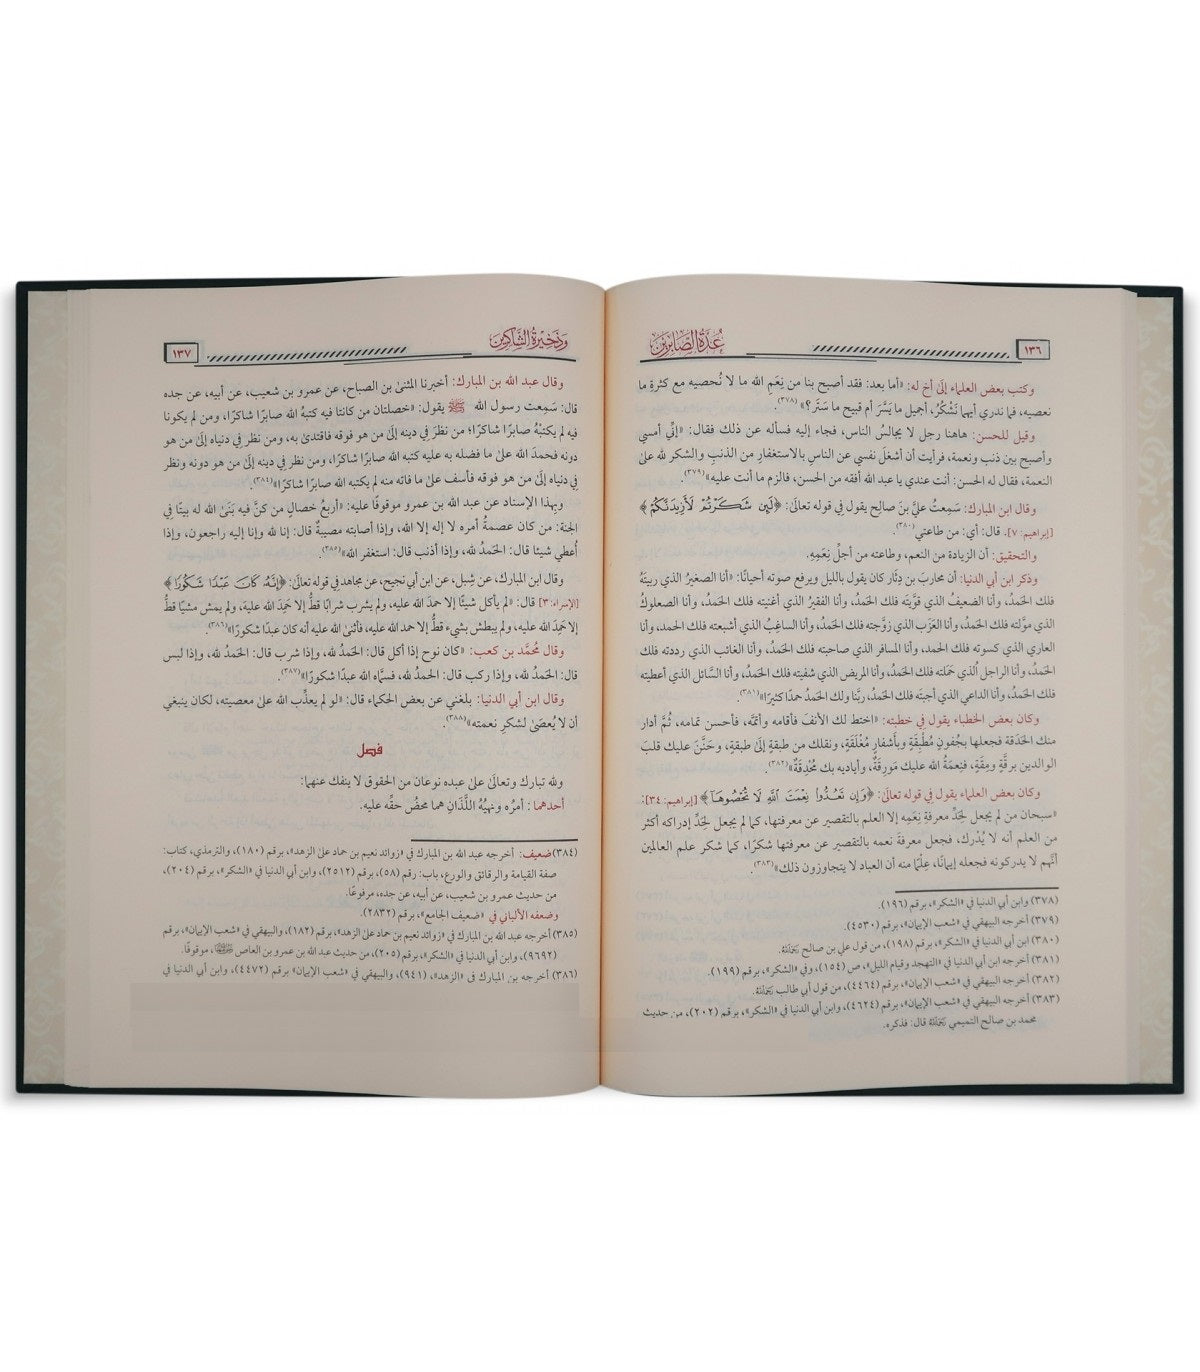 ١٣٦
عُدَّةُ الصَّابِرِينَ
وكتب بعض العلماء إلى أخ له: «أما بعد: فقد أصبح بنا من نِعَمِ الله ما لا نُحصيه مع كثرة ما
نعصيه، فما ندري أيهما نَشْكُرُ، أجميل ما يَسَّرَ أم قبيح ما سَتَر؟»(٣٧٨).
وقيل للحسن: هاهنا رجل لا يجالسُ الناس، فجاء إليه فسأله عن ذلك فقال: «إنِّي أمسي
وأصبح بين ذنب ونعمة، فرأيت أن أشغلَ نفسي عن الناسِ بالاستغفارِ من الذنبِ والشكر لله علىٰ
النعمة، فقال له الحسن: أنت عندي يا عبد الله أفقه من الحسن، فالزم ما أنت عليه»(٣٧٩).
وقال ابن المبارك: سَمِعتُ عليَّ بنَ صالح يقول في قوله تعالىٰ: ﴿لَئِن شَكَرْتُمْ لَأَزِيدَنَّكُمْ﴾
[إبراهيم: ٧]. قال: أي: من طاعتي(٣٨٠).
والتحقيق: أن الزيادة من النعم، وطاعته من أجلِّ نِعَمِهِ.
وذكر ابن أبي الدنيا: أن محاربَ بن دِثار كان يقول بالليل ويرفع صوته أحيانًا: «أنا الصغيرُ الذي ربيتَهُ
فلك الحَمدُ، وأنا الضعيفُ الذي قوَّيتَه فلك الحَمدُ، وأنا الفقيرُ الذي أغنيته فلك الحَمدُ، وأنا الصعلوكُ
الذي موَّلته فلك الحَمدُ، وأنا العَزَب الذي زوَّجته فلك الحَمدُ، وأنا الساغِبُ الذي أشبعته فلك الحمد، وأنا
العاري الذي كسوته فلك الحمد، وأنا المسافر الذي صاحبته فلك الحَمدُ، وأنا الغائب الذي رددته فلك
الحَمدُ، وأنا الراجل الذي حَمَلته فلك الحَمدُ، وأنا المريض الذي شفيته فلك الحَمدُ، وأنا السَّائل الذي أعطيته
فلك الحَمدُ، وأنا الداعي الذي أجبتَه فلك الحَمدُ، ربَّنا ولك الحَمدُ حمدًا كثيرًا»(٣٨١).
وكان بعض الخطباء يقول في خطبته: «اختط لك الأنفَ فأقامه وأتمَّه، فأحسن تمامه، ثُمَّ أدار
منك الحَدَقة فجعلها بجُفونٍ مُطبِقَةٍ وبأَشفارٍ مُعْلَقَةٍ، ونقلك من طبقةٍ إلىٰ طبقةٍ، وحَنَّنَ عليك قلبَ
الوالدين برقَّةٍ ومِقَةٍ، فنِعمَةُ الله عليك مَورِقَةٌ، وأياديه بك مُحْدِقَةٌ»(٣٨٢).
وكان بعض العلماء يقول في قوله تعالىٰ: ﴿وَإِن تَعُدُّوا نِعْمَتَ ٱللَّهِ لَا تُحْصُوهَآ﴾ [إبراهيم: ٣٤]:
«سبحان من لم يجعل لحَدِّ معرفةِ نِعَمِه إلا العلم بالتقصير عن معرفتها، كما لم يجعل لحَدِّ إدراكه أكثر
من العلم أنه لا يُدْرك، فجعل معرفةَ نعمه بالتقصير عن معرفتها شكرًا، كما شكر علم العالمين
أنَّهم لا يدركونه فجعله إيمانًا، عِلْمًا منه أن العباد لا يتجاوزون ذلك»(٣٨٣).
(٣٧٨) وابن أبي الدنيا في «الشكر»، برقم (١٩٦).
(٣٧٩) أخرجه البيهقي في «شعب الإيمان»، برقم (٤٥٣٠).
(٣٨٠) ابن أبي الدنيا في «الشكر»، برقم (١٩٨)، من قول علي بن صالح رَحِمَهُ اللَّهُ.
(٣٨١) أخرجه ابن أبي الدنيا في «التهجد وقيام الليل»، ص (١٥٤)، وفي «الشكر»، برقم (١٩٩).
(٣٨٢) أخرجه البيهقي في «شعب الإيمان»، برقم (٤٤٦٤)، من قول أبي طالب رَحِمَهُ اللَّهُ.
(٣٨٣) أخرجه البيهقي في «شعب الإيمان»، برقم (٤٦٢٤)، وابن أبي الدنيا في «الشكر»، برقم (٢٠٢)، من حديث
محمد بن صالح التميمي رَحِمَهُ اللَّهُ قال: فذكره.
وَذَخِيرَةُ الشَّاكِرِينَ
١٣٧
وقال عبد الله بن المبارك: أخبرنا المثنىٰ بن الصباح، عن عمرو بن شعيب، عن أبيه، عن جده
قال: سَمِعت رسول الله ﷺ يقول: «خصلتان من كانتا فيه كتبهُ الله صابرًا شاكرًا، ومن لم يكونا
فيه لم يكتبْهُ صابرًا شاكرًا؛ من نظرَ في دينه إلىٰ من هو فوقه فاقتدىٰ به، ومن نظر في دنياه إلىٰ من هو
دونه فحمدَ الله علىٰ ما فضله به عليه كتبه الله صابرًا شاكرًا، ومن نظر في دينه إلىٰ من هو دونه ونظر
في دنياه إلىٰ من هو فوقه فأسف علىٰ ما فاته منه لم يكتبه الله صابرًا شاكرًا»(٣٨٤).
وبهذا الإسناد عن عبد الله بن عمرو موقوفًا عليه: «أربعُ خصالٍ من كنَّ فيه بَنَىٰ الله له بيتًا في
الجنة: من كان عصمةُ أمره لا إله إلا الله، وإذا أصابته مصيبةٌ قال: إنا لله وإنا إليه راجعون، وإذا
أُعطي شيئا قال: الحَمدُ لله، وإذا أذنب قال: استغفر الله»(٣٨٥).
وقال ابن المبارك، عن شِبل، عن ابن أبي نجيح، عن مجاهد في قوله تعالىٰ: ﴿إِنَّهُ كَانَ عَبْدًا شَكُورًا﴾
[الإسراء:٣] قال: «لم يأكل شيئًا إلا حمدَ الله عليه، ولم يشرب شرابًا قطُّ إلا حَمِدَ الله عليه، ولم يمش مشيًا قطُّ
إلا حَمِدَ الله عليه، ولم يبطش بشيء قطُّ إلا حمد الله عليه، فأثنىٰ الله عليه أنه كان عبدًا شكورًا»(٣٨٦).
وقال مُحَمَّد بن كعب: «كان نوح إذا أكل قال: الحَمدُ لله، وإذا شرب قال: الحَمدُ لله، وإذا لبس
قال: الحَمدُ لله، وإذا ركب قال: الحمدُ لله، فسمَّاه الله عبدًا شكورًا»(٣٨٧).
وقال ابن أبي الدنيا: بلغني عن بعض الحكماء قال: «لو لم يعذِّب الله علىٰ معصيته، لكان ينبغي
أن لا يُعصَىٰ لشكر نعمته»(٣٨٨).
فصل
ولله تبارك وتعالىٰ علىٰ عبده نوعان من الحقوق لا ينفك عنهما:
أحدهما: أمرُه ونهيُهُ اللَّذَانِ هما محضُ حقِّه عليه.
(٣٨٤) ضعيف: أخرجه عبد الله بن المبارك في «زوائد نعيم بن حماد علىٰ الزهد»، برقم (١٨٠)، والترمذي، كتاب:
صفة القيامة والرقائق والورع، باب: رقم (٥٨)، برقم (٢٥١٢)، وابن أبي الدنيا في «الشكر»، برقم (٢٠٤)،
من حديث عمرو بن شعيب، عن أبيه، عن جده، مرفوعًا.
وضعفه الألباني في «ضعيف الجامع»، برقم (٢٨٣٢).
(٣٨٥) أخرجه عبد الله بن المبارك في «زوائد نعيم بن حماد علىٰ الزهد»، برقم (١٨٢)، والبيهقي في «شعب الإيمان»، برقم
(٩٦٩٢)، وابن أبي الدنيا في «الشكر»، برقم (٢٠٥)، من حديث عبد الله بن عمرو بن العاص، موقوفًا.
(٣٨٦) أخرجه ابن المبارك في «الزهد»، (٩٤١)، والبيهقي في «شعب الإيمان» برقم (٤٤٧٢)، وابن أبي الدنيا في